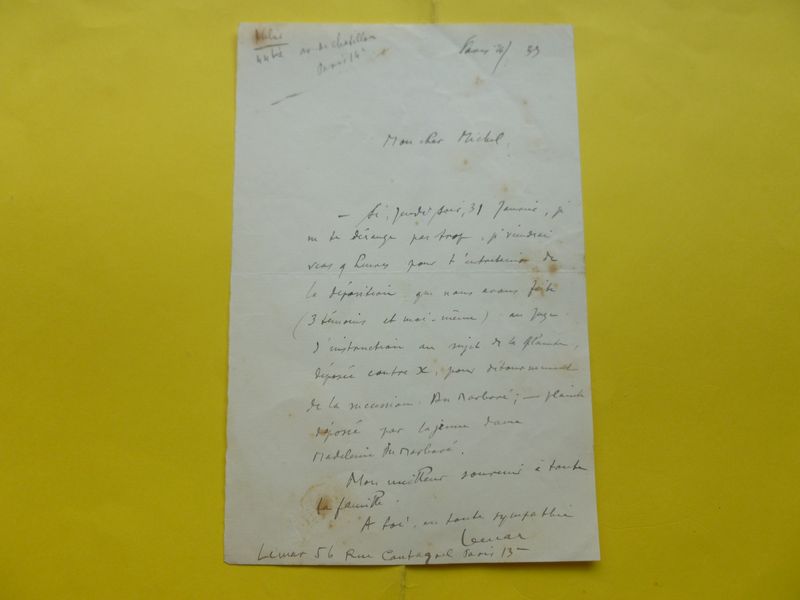 44 bis av. de Chatillon
Paris 14e
Paris 33
Mon cher Michel,
— Si, jeudi soir, 31 Janvier, je
ne te dérange pas trop, je viendrai
vers 9 heures pour t'entretenir de
la déposition que nous avons faite
(3 témoins et moi-même) au Juge
d'instruction au sujet de la plainte,
déposée contre X, pour détournement
de la succession Du Marboré; — plainte
déposée par la jeune dame
Madeleine Du Marboré.
Mon meilleur souvenir à toute
la famille.
A toi, en toute sympathie
Lemar
Lemar 56 Rue Cantagrel Paris 13e